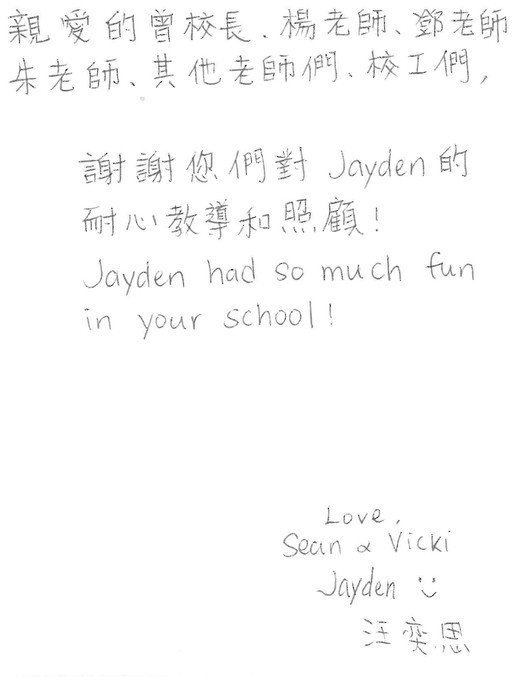 親愛的曾校長、楊老師、鄧老師
朱老師、其他老師們、校工們,
謝謝您們對 Jayden 的
耐心教導和照顧!
Jayden had so much fun
in your school!
Love,
Sean & Vicki
Jayden
汪奕思